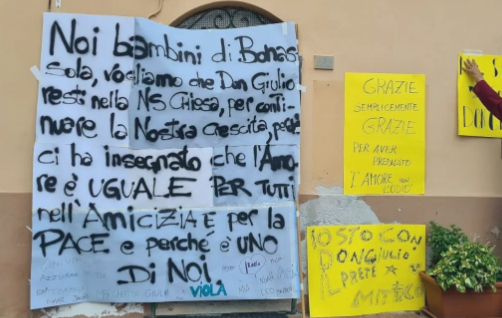 Noi bambini di Bonas
sola, vogliamo che Don Giulio
resti nella NS CHiesa, per conti-
nuare la Nostra crescita, perchè
ci ha insegnato che l'Amo
re è UGUALE PER TUTTI
nell'AmiCiZIA E per la
PACE e perché è UNO
DI NOI.
VIOLA
GRAZIE
SEMPLICEMENTE
GRAZIE
PER AVER
PREDICATO
L'AMORE
IO STO CON
DON GIULIO
PRETE
MITICO